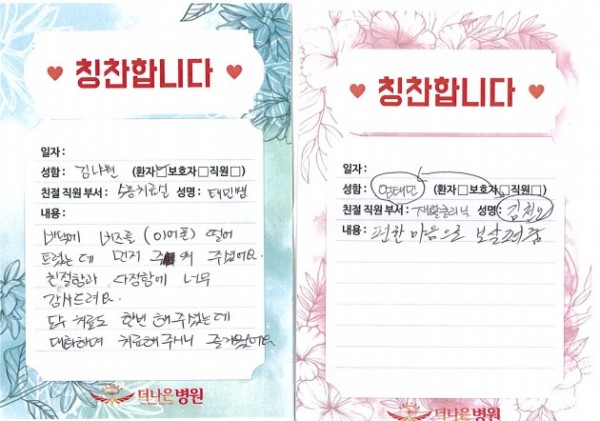 칭찬합니다
일자 :
성함 : 김나현 (환자 보호자 직원)
친절 직원 부서 : 수중치료실 성명 : 태민범
내용 :
바닥에 버즈를 (이어폰) 떨어
트렸는데 먼저 주워 주셨어요.
친절함과 다정함에 너무
감사드려요.
도수 치료도 한번 해주셨는데
대화하며 치료해주시니 즐거웠어요.
더나은병원
칭찬합니다
일자 :
성함 : (환자 보호자 직원)
친절 직원 부서 : 재활클리닉 성명 :
내용 : 편한 마음으로 보살펴줌
더나은병원